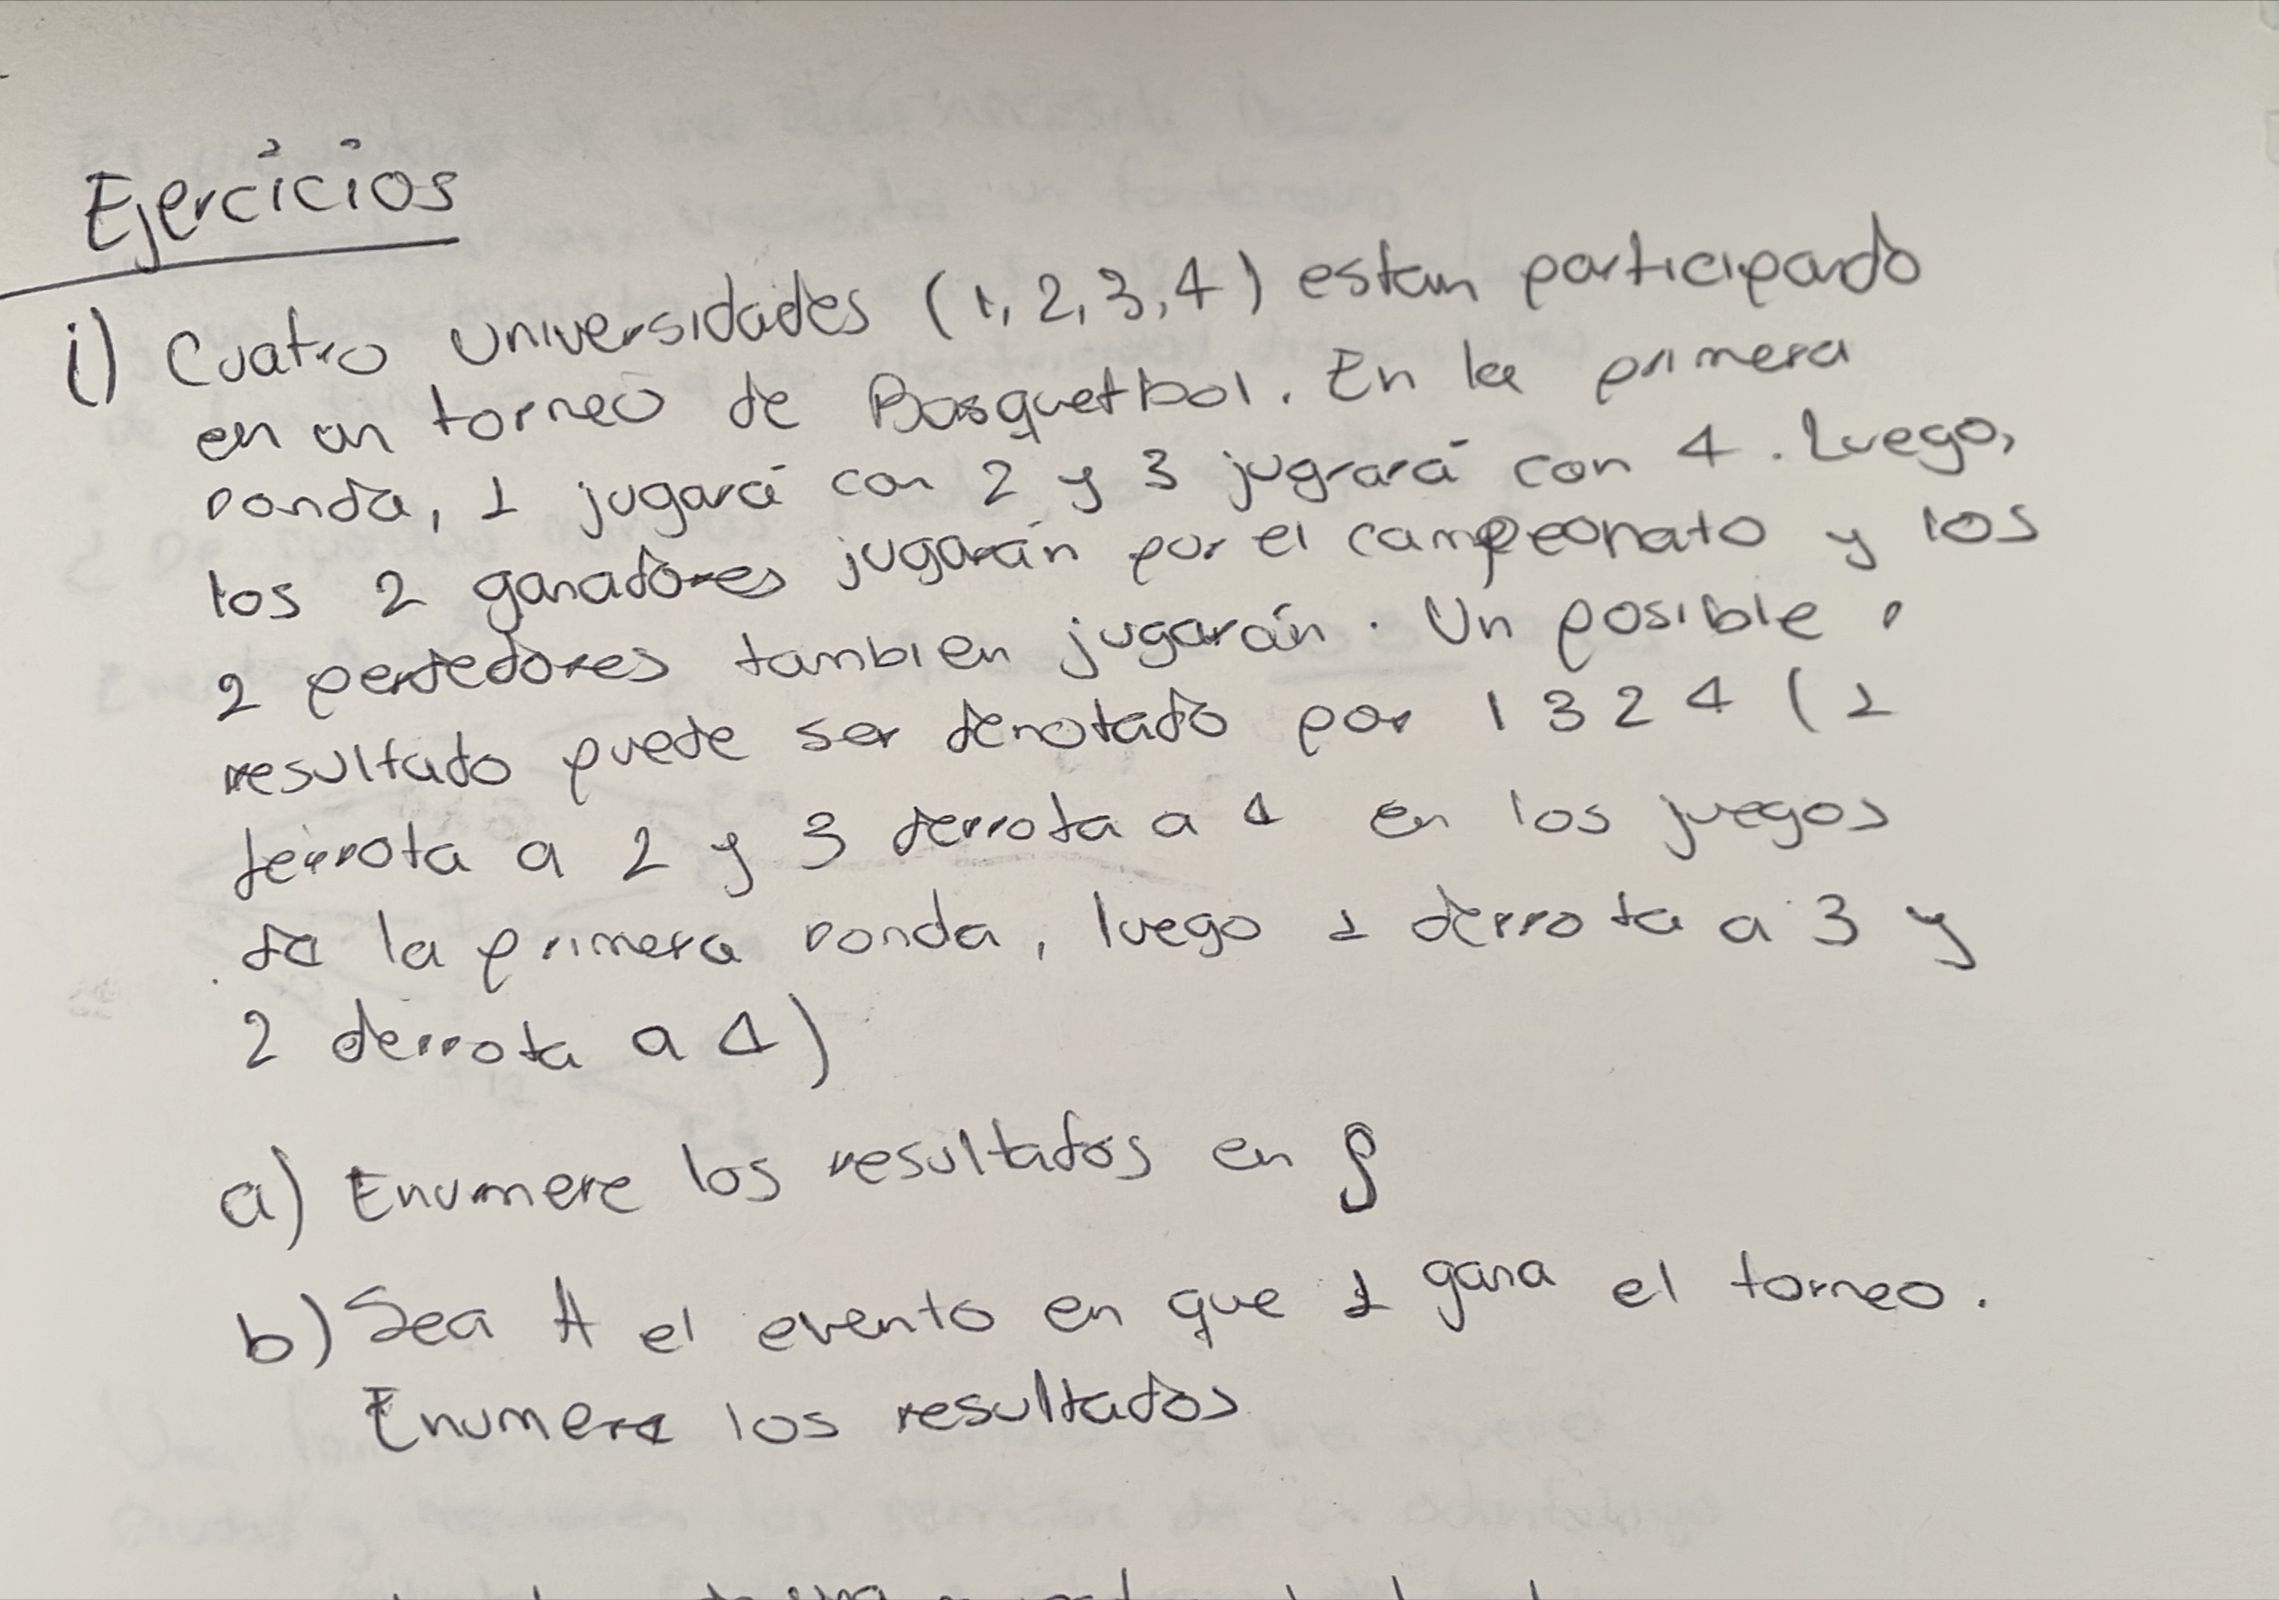 Ejercicios
i) Cuatro universidades (1, 2, 3, 4) estan participando
en un torneo de Basquetbol. En la primera
ronda, 1 jugará con 2 y 3 jugrará con 4. Luego,
los 2 ganadores jugarán por el campeonato y los
2 perdedores tambien jugarán. Un posible
resultado puede ser denotado por 1 3 2 4 ( 1
derrota a 2 y 3 derrota a 4 en los juegos
de la primera ronda, luego 1 derrota a 3 y
2 derrota a 4)
a) Enumere los resultados en S
b) Sea A el evento en que 1 gana el torneo.
Enumere los resultados